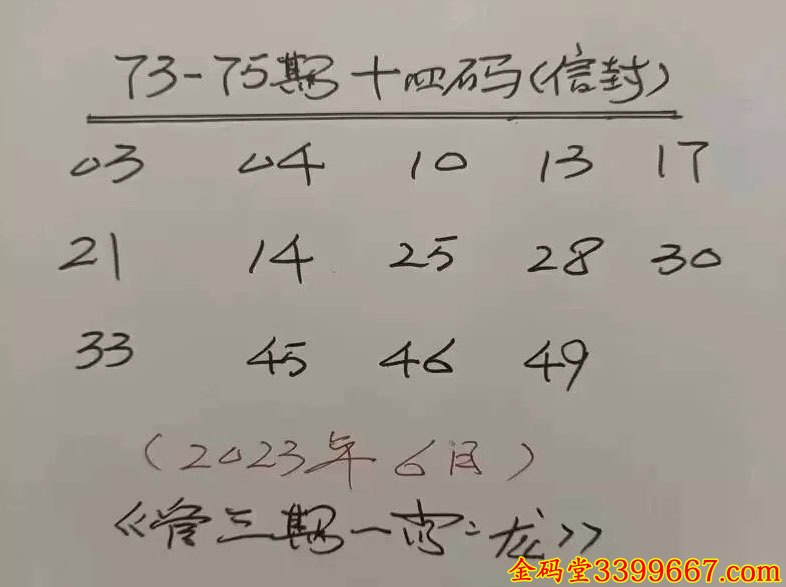 73-75期十四码(信封)
03 04 10 13 17
21 14 25 28 30
33 45 46 49
(2023年6月)
《管三期一肖:龙》
金码堂3399667.com